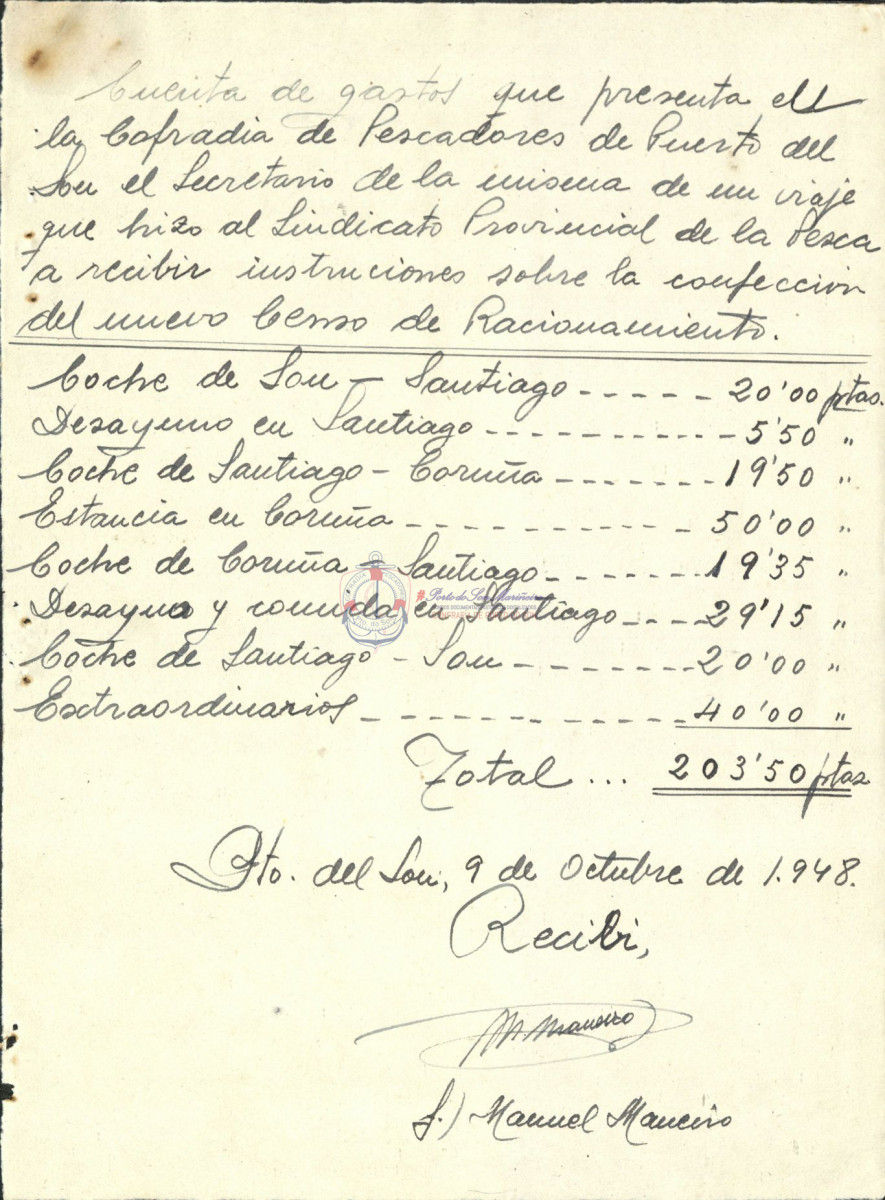 Cuenta de gastos que presenta ell
la Cofradia de Pescadores de Puerto del
Son el Secretario de la misma de un viaje
que hizo al Sindicato Provincial de la Pesca
a recibir instruciones sobre la confección
del nuevo Censo de Racionamiento.
Coche de Son – Santiago ----- 20'00 ptas.
Desayuno en Santiago ----------- 5'50 "
Coche de Santiago – Coruña ------- 19'50 "
Estancia en Coruña ------------ 50'00 "
Coche de Coruña – Santiago ------- 19'35 "
Desayuno y comida en Santiago ---- 29'15 "
Coche de Santiago – Son ------- 20'00 "
Extraordinarios -------------- 40'00 "
Total ... 203'50 ptas
Pto. del Son, 9 de Octubre de 1.948.
Recibi,
M. Maneiro
f.) Manuel Maneiro
#Porto do Son Mariñeiro